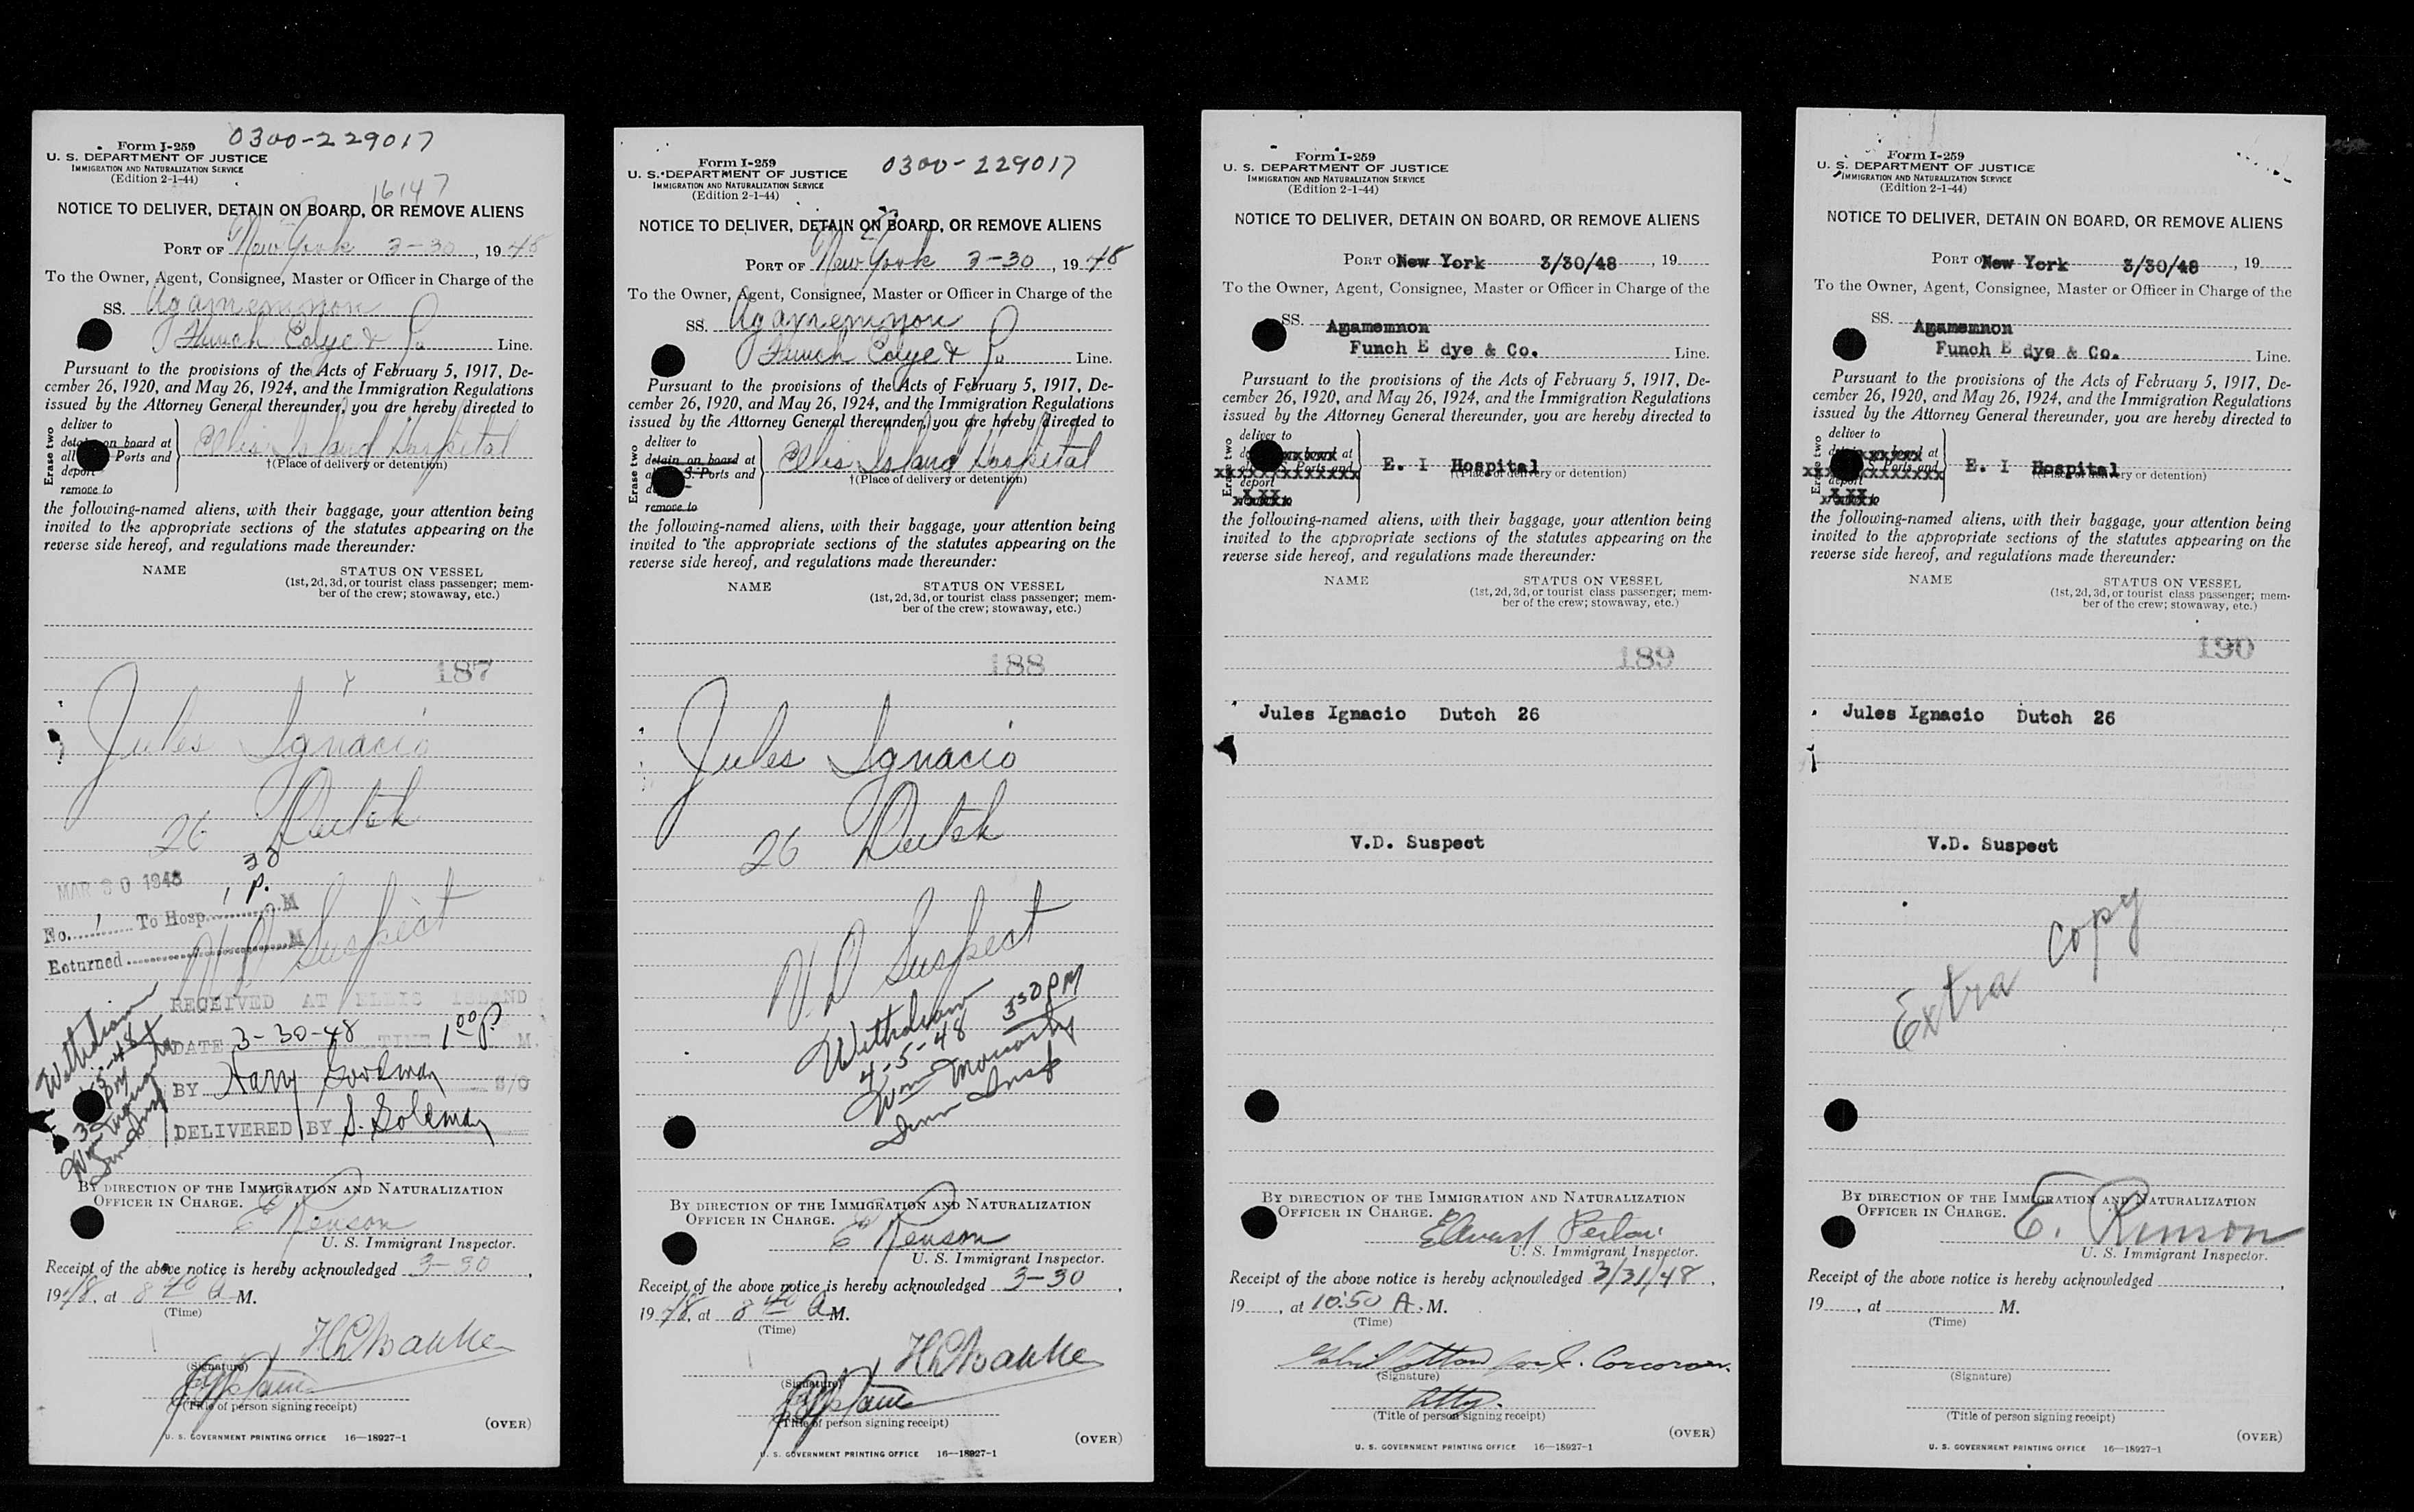 Form I-259 0300-229017
U. S. DEPARTMENT OF JUSTICE
IMMIGRATION AND NATURALIZATION SERVICE
(Edition 2-1-44)
16147
NOTICE TO DELIVER, DETAIN ON BOARD, OR REMOVE ALIENS
PORT OF New York 3-30, 1948
To the Owner, Agent, Consignee, Master or Officer in Charge of the
SS. Agamemnon
Funch Edye & Co Line.
Pursuant to the provisions of the Acts of February 5, 1917, De-
cember 26, 1920, and May 26, 1924, and the Immigration Regulations
issued by the Attorney General thereunder, you are hereby directed to
Erase two
deliver to
on board at Ellis Island Hospital
all Ports and †(Place of delivery or detention)
deport
remove to
the following-named aliens, with their baggage, your attention being
invited to the appropriate sections of the statutes appearing on the
reverse side hereof, and regulations made thereunder:
NAME STATUS ON VESSEL
(1st, 2d, 3d, or tourist class passenger; mem-
ber of the crew; stowaway, etc.)
187
Jules Ignacio
26 Dutch
MAR 30 1948 1 30 P.
No. 1 To Hosp. M
Returned M
V.D. Suspect
RECEIVED AT ELLIS ISLAND
DATE 3-30-48 TIME 1 00 P. M.
BY Harry Goodman S/O
DELIVERED BY S. Goleman
Withdrawn
4-5-48
BY DIRECTION OF THE IMMIGRATION AND NATURALIZATION
OFFICER IN CHARGE.
E Renson
U. S. Immigrant Inspector.
Receipt of the above notice is hereby acknowledged 3-30,
1948, at 8 40 A M.
(Time)
(Signature)
(Title of person signing receipt)
(OVER)
U. S. GOVERNMENT PRINTING OFFICE 16—18927-1
Form I-259 0300-229017
U. S. DEPARTMENT OF JUSTICE
IMMIGRATION AND NATURALIZATION SERVICE
(Edition 2-1-44)
NOTICE TO DELIVER, DETAIN ON BOARD, OR REMOVE ALIENS
PORT OF New York 3-30, 1948
To the Owner, Agent, Consignee, Master or Officer in Charge of the
SS. Agamemnon
Funch Edye & Co Line.
Pursuant to the provisions of the Acts of February 5, 1917, De-
cember 26, 1920, and May 26, 1924, and the Immigration Regulations
issued by the Attorney General thereunder, you are hereby directed to
Erase two
deliver to
detain on board at Ellis Island Hospital
S. Ports and †(Place of delivery or detention)
remove to
the following-named aliens, with their baggage, your attention being
invited to the appropriate sections of the statutes appearing on the
reverse side hereof, and regulations made thereunder:
NAME STATUS ON VESSEL
(1st, 2d, 3d, or tourist class passenger; mem-
ber of the crew; stowaway, etc.)
188
Jules Ignacio
26 Dutch
V.D. Suspect
Withdrawn 3 30 PM
4-5-48
Wm Moriarty
Imm Insp
BY DIRECTION OF THE IMMIGRATION AND NATURALIZATION
OFFICER IN CHARGE.
E Renson
U. S. Immigrant Inspector.
Receipt of the above notice is hereby acknowledged 3-30,
1948, at 8 40 A M.
(Time)
(Signature)
(Title of person signing receipt)
(OVER)
U. S. GOVERNMENT PRINTING OFFICE 16—18927-1
Form I-259
U. S. DEPARTMENT OF JUSTICE
IMMIGRATION AND NATURALIZATION SERVICE
(Edition 2-1-44)
NOTICE TO DELIVER, DETAIN ON BOARD, OR REMOVE ALIENS
PORT O New York 3/30/48, 19
To the Owner, Agent, Consignee, Master or Officer in Charge of the
SS. Agamemnon
Funch E dye & Co. Line.
Pursuant to the provisions of the Acts of February 5, 1917, De-
cember 26, 1920, and May 26, 1924, and the Immigration Regulations
issued by the Attorney General thereunder, you are hereby directed to
deliver to
at
S. Ports and E. I Hospital
(Place of delivery or detention)
deport
the following-named aliens, with their baggage, your attention being
invited to the appropriate sections of the statutes appearing on the
reverse side hereof, and regulations made thereunder:
NAME STATUS ON VESSEL
(1st, 2d, 3d, or tourist class passenger; mem-
ber of the crew; stowaway, etc.)
189
Jules Ignacio Dutch 26
V.D. Suspect
BY DIRECTION OF THE IMMIGRATION AND NATURALIZATION
OFFICER IN CHARGE.
U. S. Immigrant Inspector.
Receipt of the above notice is hereby acknowledged 3/31/48.
19, at 10:50 A. M.
(Time)
Corcoran.
(Signature)
Atty.
(Title of person signing receipt)
(OVER)
U. S. GOVERNMENT PRINTING OFFICE 16—18927-1
Form I-259
U. S. DEPARTMENT OF JUSTICE
IMMIGRATION AND NATURALIZATION SERVICE
(Edition 2-1-44)
NOTICE TO DELIVER, DETAIN ON BOARD, OR REMOVE ALIENS
PORT O New York 3/30/48, 19
To the Owner, Agent, Consignee, Master or Officer in Charge of the
SS. Agamemnon
Funch E dye & Co. Line.
Pursuant to the provisions of the Acts of February 5, 1917, De-
cember 26, 1920, and May 26, 1924, and the Immigration Regulations
issued by the Attorney General thereunder, you are hereby directed to
deliver to
at
S. Ports and E. I Hospital
(Place of delivery or detention)
deport
the following-named aliens, with their baggage, your attention being
invited to the appropriate sections of the statutes appearing on the
reverse side hereof, and regulations made thereunder:
NAME STATUS ON VESSEL
(1st, 2d, 3d, or tourist class passenger; mem-
ber of the crew; stowaway, etc.)
190
Jules Ignacio Dutch 26
V.D. Suspect
Extra Copy
BY DIRECTION OF THE IMMIGRATION AND NATURALIZATION
OFFICER IN CHARGE.
E. Renson
U. S. Immigrant Inspector.
Receipt of the above notice is hereby acknowledged
19, at M.
(Time)
(Signature)
(Title of person signing receipt)
(OVER)
U. S. GOVERNMENT PRINTING OFFICE 16—18927-1